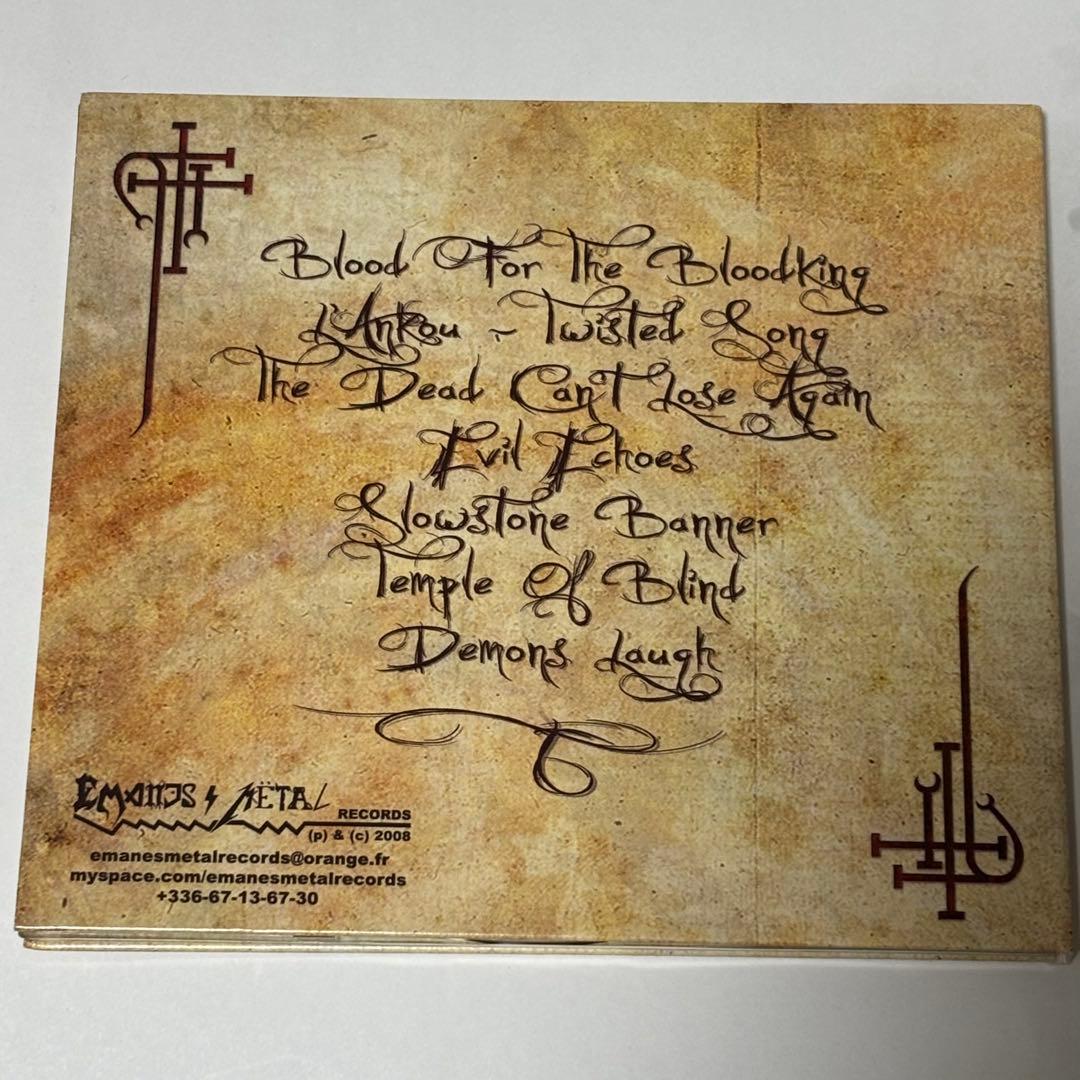 Blood For The Bloodking
L'Ankou ~ Twisted Song
The Dead Can't Lose Again
Evil Echoes
Slowstone Banner
Temple Of Blind
Demons Laugh
EMANES METAL
RECORDS
(p) & (c) 2008
emanesmetalrecords@orange.fr
myspace.com/emanesmetalrecords
+336-67-13-67-30